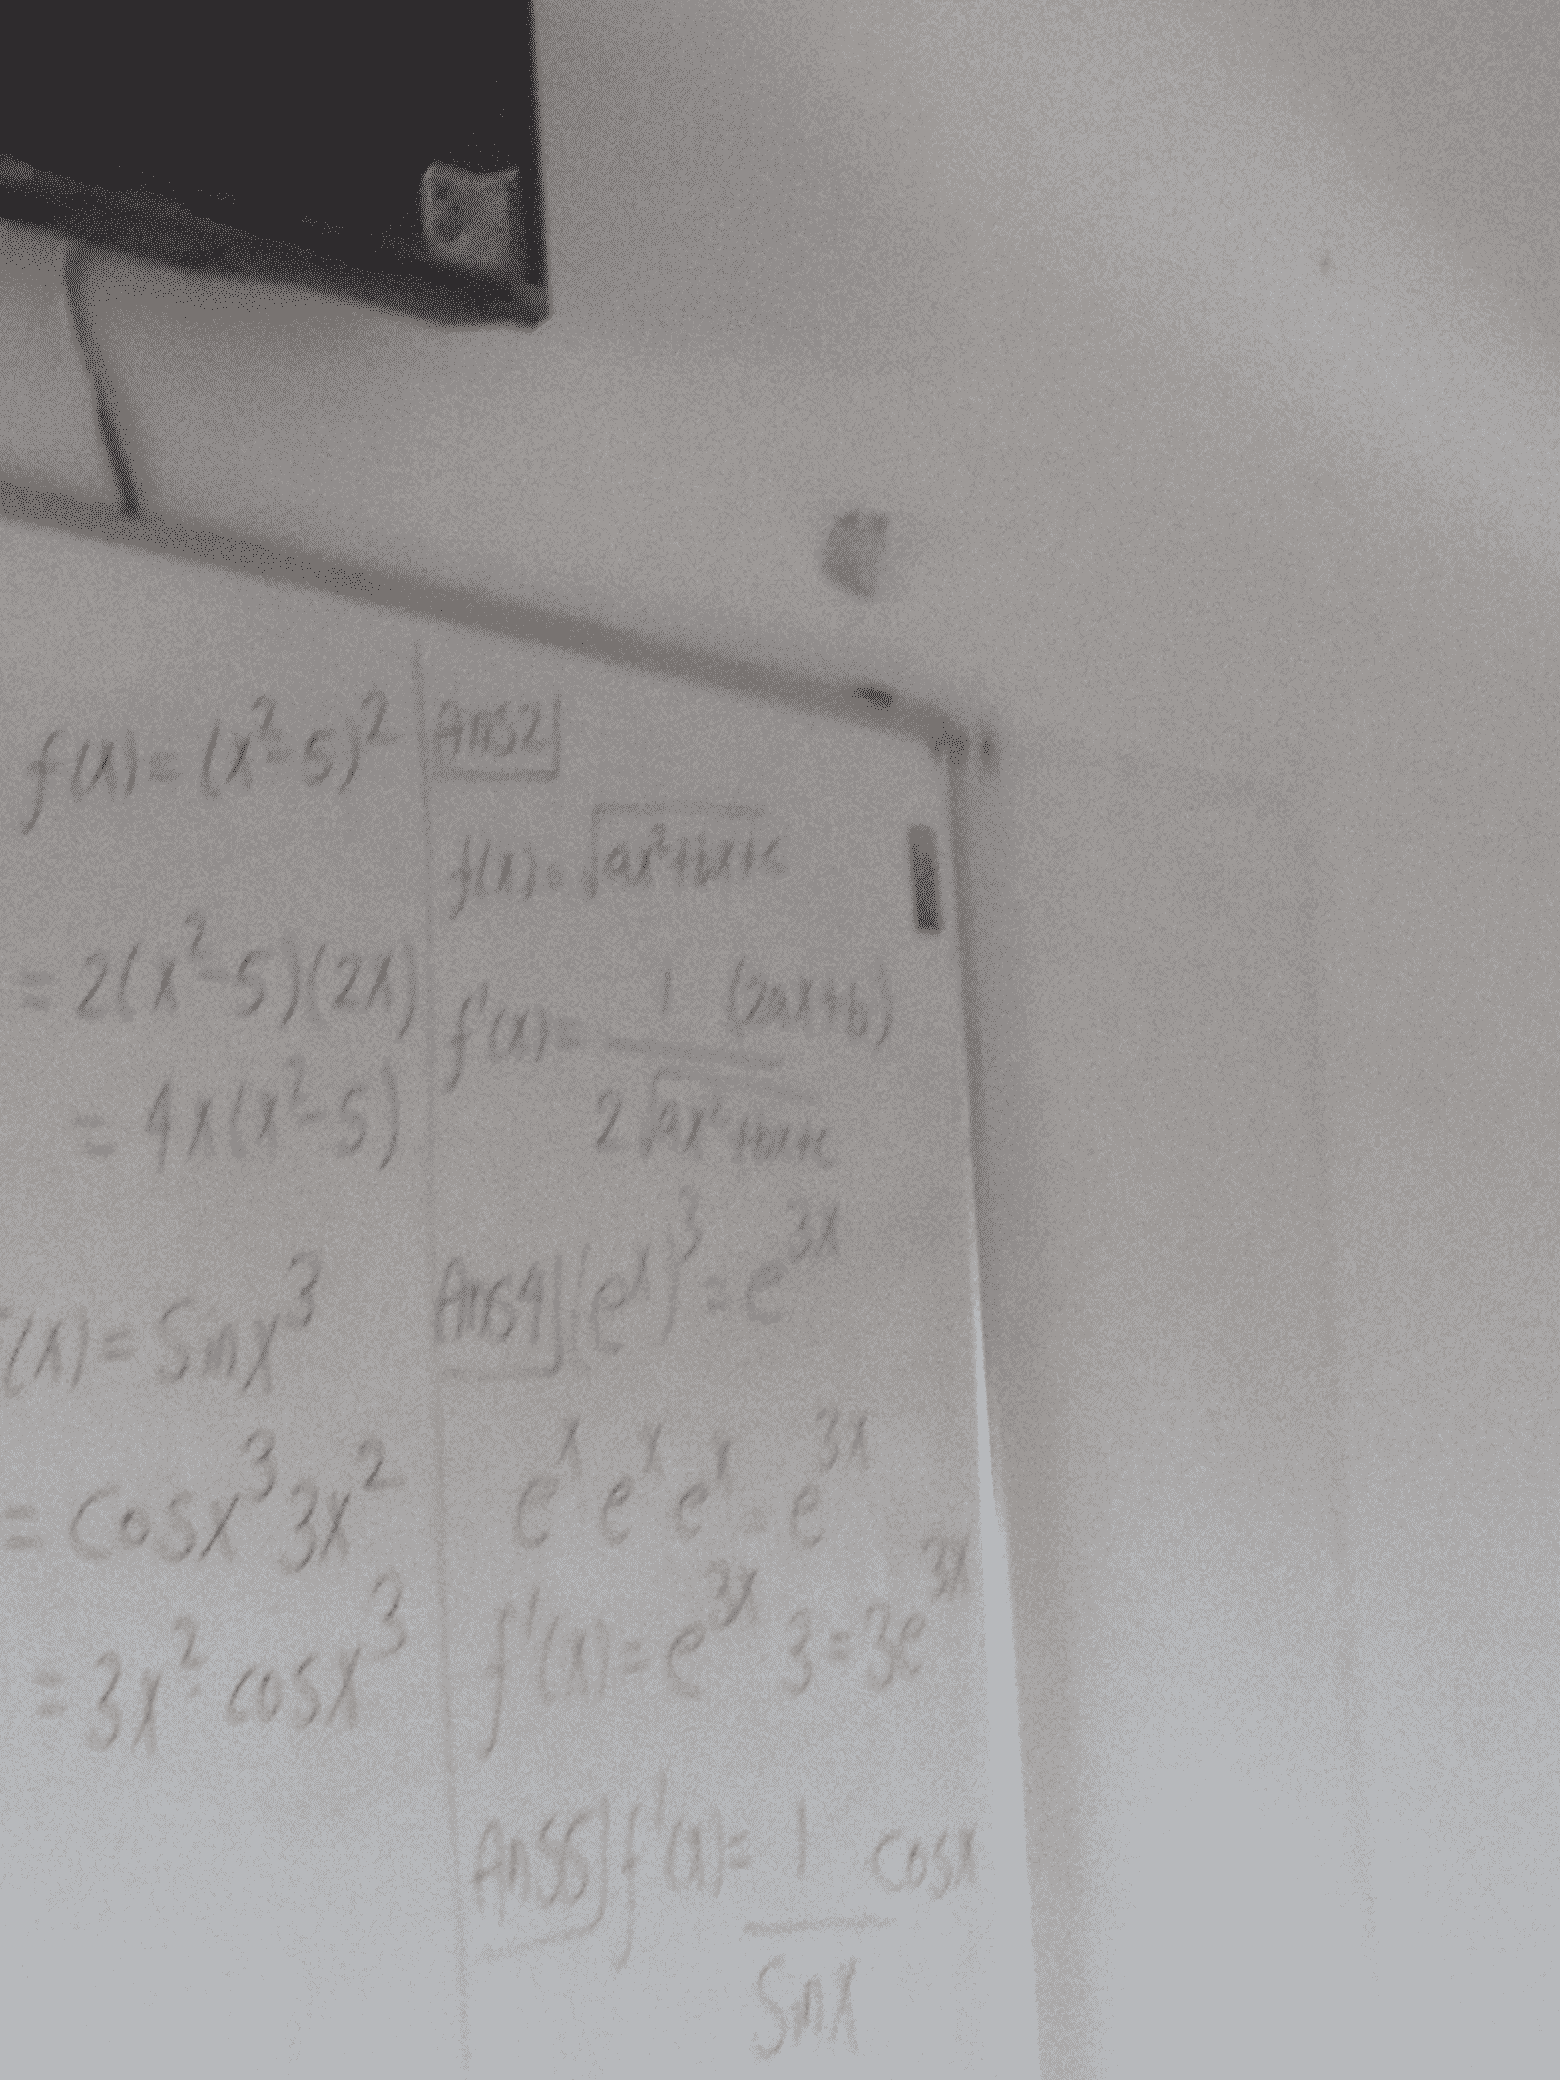 f(x) = (x²-5)²
= 2(x²-5)(2x)
= 4x(x²-5)
(x) = Sinx³
= Cosx³ 3x²
= 3x² cosx³
Ans2
f(x) = √ax²+bx+c
f'(x) = 1 (2ax+b)
2√ax²+bx+c
Ans4 (eˣ)³ = e³ˣ
eˣ eˣ eˣ = e³ˣ
f'(x) = e³ˣ 3 = 3e³ˣ
f'(x) = 1 cosx
Sinx